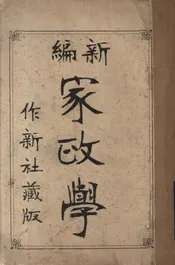 新編
家政學
作新社藏版